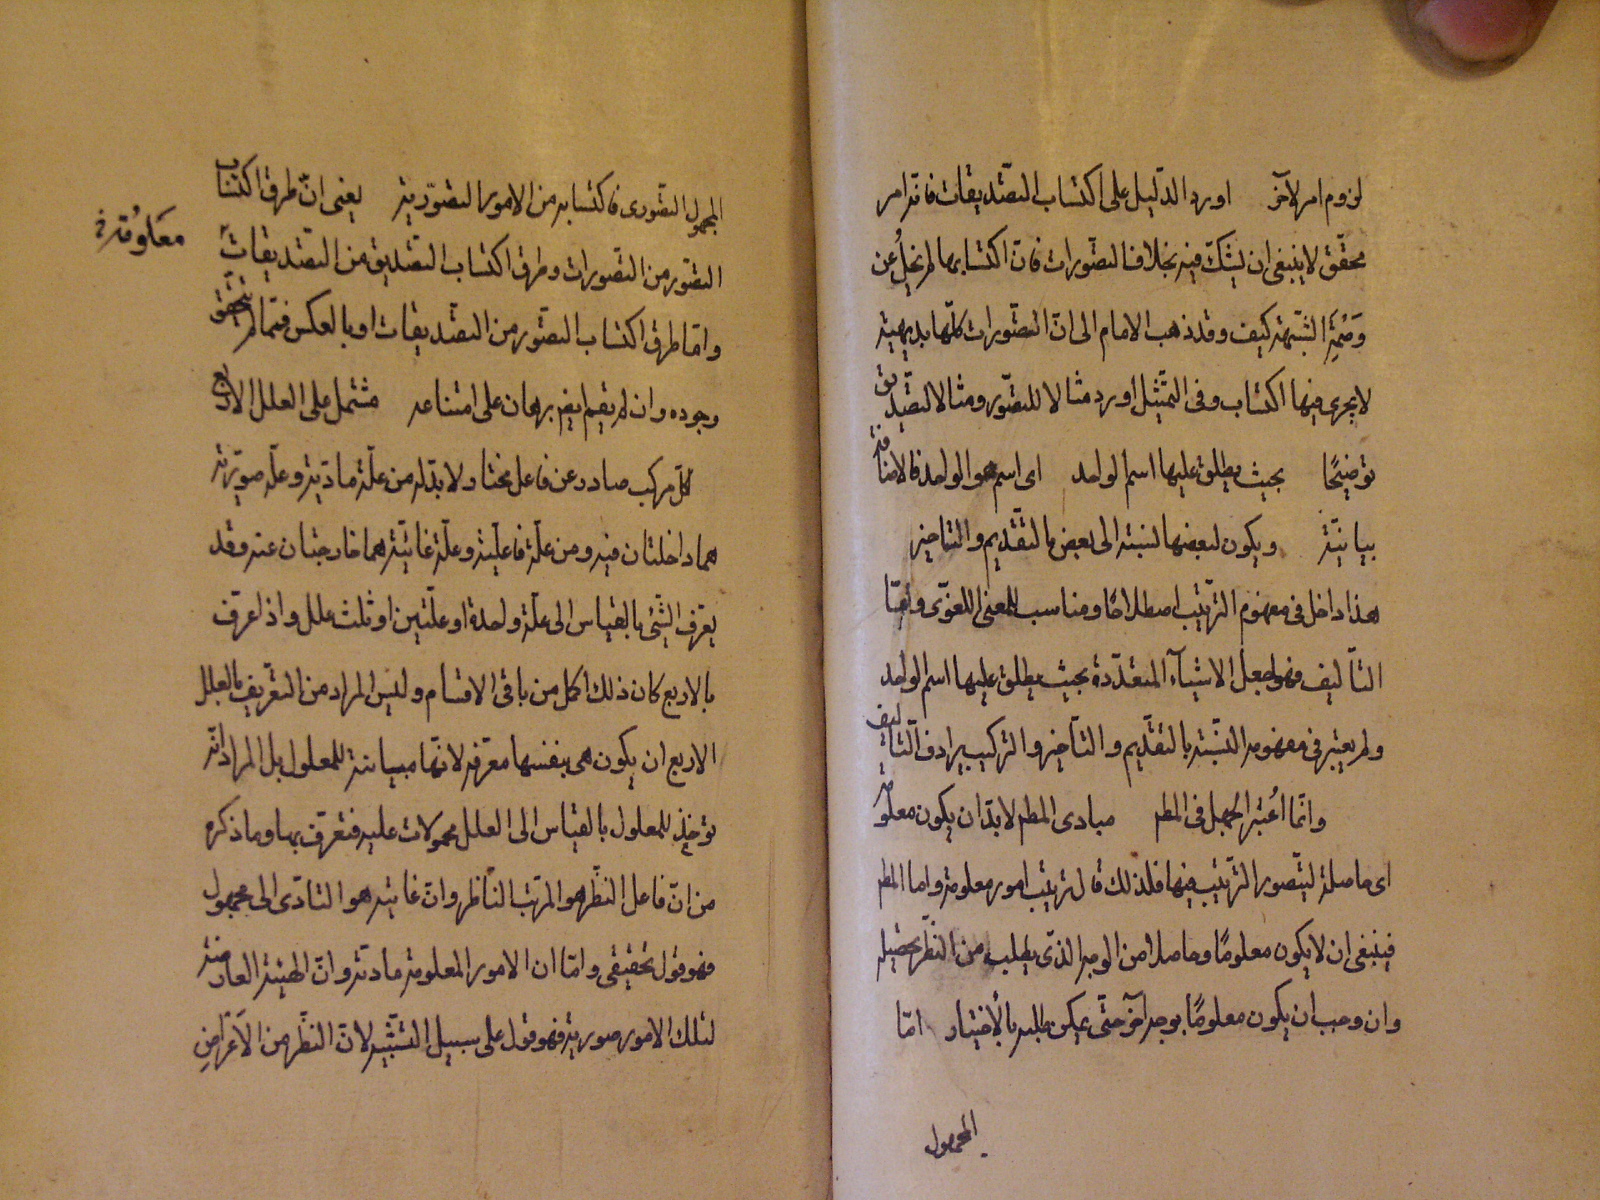 لزوم امر لآخر اورد الدّليل على اكتساب التصّديقات فانه امر
محقّق لا ينبغى ان يشكّ فيه بخلاف التصّورات فان اكتسابها لم يخلُ عن
وَصْمَةِ الشبّهة كيف وقد ذهب الامام الى انّ التصّورات كلّها بديهية
لا يجرى فيها اكتساب وفى التمّثيل اورد مثالا للتصّور ومثالا للتصّديق
توضيحًا بحيث يطلق عليها اسم الواحد اى اسم هو الواحد فالاضافة
بيانيّة ويكون لبعضها نسبة الى بعض بالتقّديم والتاخير
هذا داخل فى مفهوم الترّتيب اصطلاحًا ومناسب للمعنى اللغوّى وامّا
التأليف فهو جعل الاشيآء المتعدّدة بحيث يطلق عليها اسم الواحد
ولم يعتبر فى مفهومه النسّبة بالتقّديم والتأخير والتركيب يرادف التّأليف
وانّما اُعتبر الجهل فى المط مبادى المط لابدّ ان يكون معلومة
اى حاصلة ليتّصور الترّتيب فيها فلذلك قال ترتيب امور معلومة واما المط
فينبغى ان لا يكون معلومًا وحاصلا من الوجه الذّى يطلب من النظّر تحصيله
وان وجب ان يكون معلومًا بوجه آخر حتّى يمكن طلبه بالأختيار امّا
المجهول
المجهول التصّورى فاكتسابه من الامور التصّوّرية يعنى انّ طرق اكتساب
التصّور من التصّورات وطرق اكتساب التصّديق من التصّديقات
معلومة
وامّا طرق اكتساب التصّور من التصّديقات او بالعكس فممّا لم يتحقّق
وجوده وان لم يقم ايضم برهان على امتناعه مشتمل على العلل الاربع
كلّ مركب صادر عن فاعل مختار لابدّ له من علّة ماديّة وعلّة صوريّة
هما داخلتان فيه ومن علّة فاعليّة وعلّة غائيّة هما خارجتان عنه وقد
يعرّف الشّئ بالقياس الى علّة واحدة او علّتين او ثلث علل واذا عرّف
بالاربع كان ذلك اكمل من باقى الاقسام وليس المراد من التعّريف بالعلل
الاربع ان يكون هى بنفسها معرّفة لانّها مباينة للمعلول بل المراد انّه
تؤخذ للمعلول بالقياس الى العلل محمولات عليه فتعرّف بها وما ذكره
من انّ فاعل النظّر هو المرتّب النّاظر وانّ غايته هو التادّى الى مجهول
فهو قول تحقيقى وامّا ان الامور المعلومة مادته وانّ الهيئة العارضة
لتلك الامور صورية فهو قول على سبيل التشّبيه لانّ النظّر من الآعراض